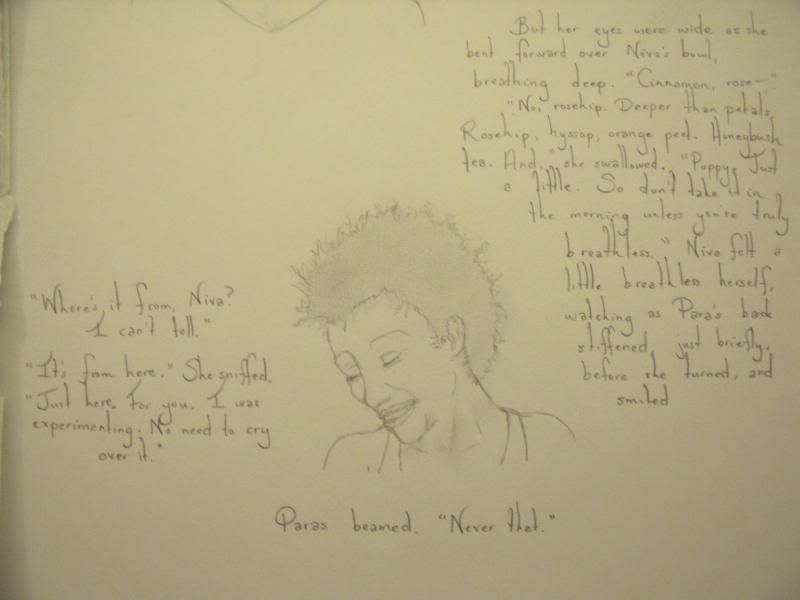 But her eyes were wide as she
bent forward over Niva's bowl,
breathing deep. "Cinnamon, rose—"
"No, rosehip. Deeper than petals.
Rosehip, hyssop, orange peel. Honeybush
tea. And," she swallowed. "Poppy. Just
a little. So don't take it in
the morning unless you're truly
breathless." Niva felt a
little breathless herself,
watching as Para's back
stiffened, just briefly,
before she turned, and
smiled
"Where's it from, Niva?
I can't tell."
"It's from here." She sniffed.
"Just here. For you. I was
experimenting. No need to cry
over it."
Paras beamed. "Never that."